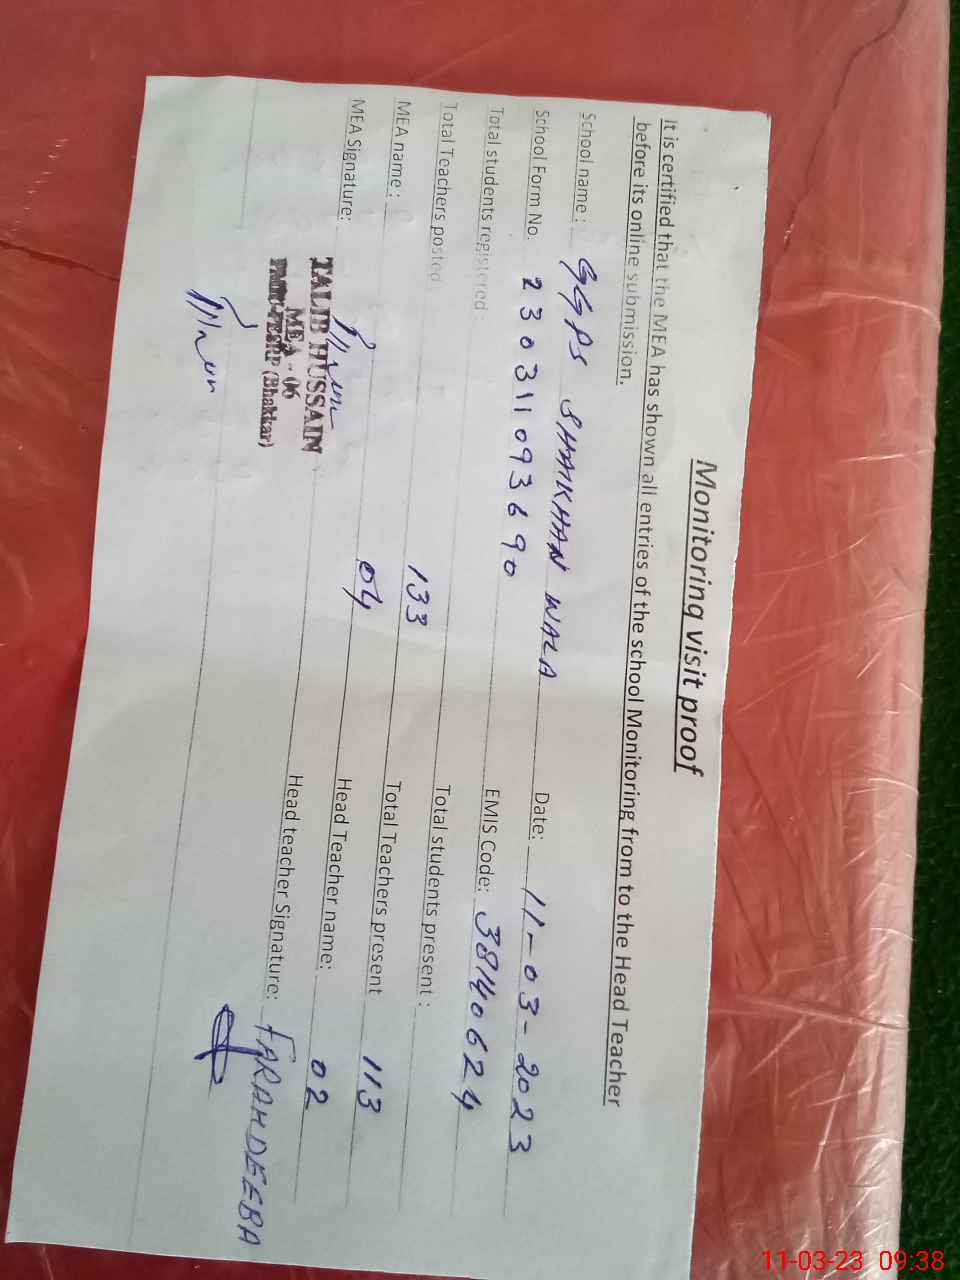 Monitoring visit proof
It is certified that the MEA has shown all entries of the school Monitoring from to the Head Teacher
before its online submission.
School name : GGPS SHAIKHAN WALA Date: 11-03-2023
School Form No. 230311093690 EMIS Code: 38140624
Total students registered : 133 Total students present : 113
Total Teachers posted 04 Total Teachers present 02
MEA name : Head Teacher name: FARAHDEEBA
MEA Signature: Head teacher Signature:
TALIB HUSSAIN
MEA - 06
PMIU-PESRP (Bhakkar)
11-03-23 09:38